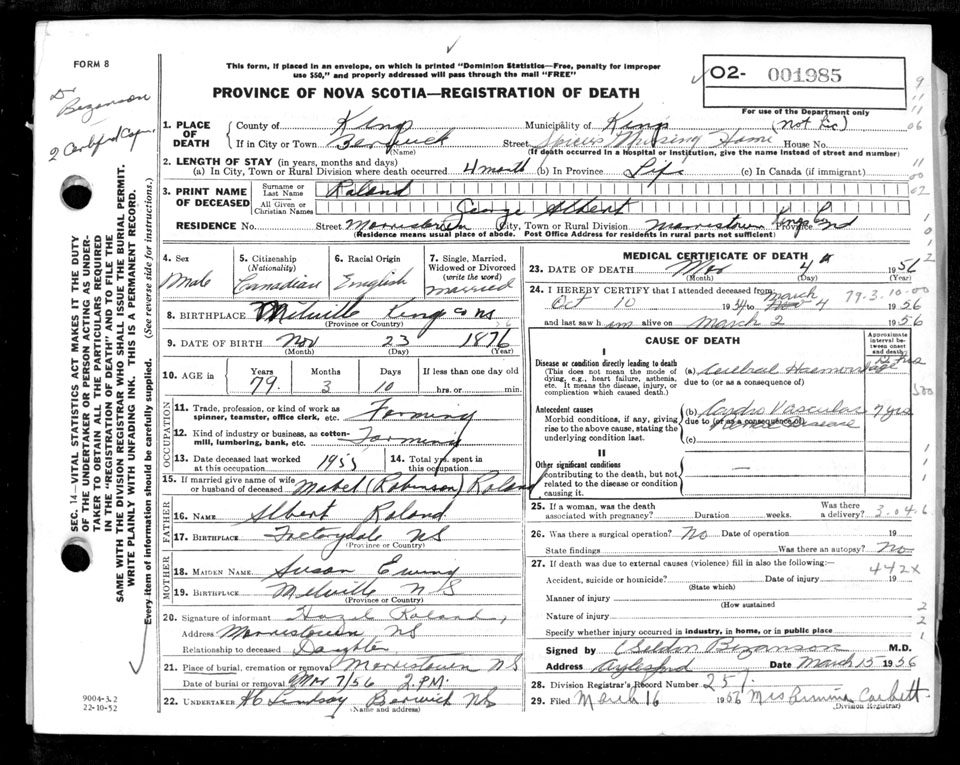 FORM 8
This form, if placed in an envelope, on which is printed "Dominion Statistics—Free, penalty for improper
use $50," and properly addressed will pass through the mail "FREE"
O2- 001985
For use of the Department only
PROVINCE OF NOVA SCOTIA—REGISTRATION OF DEATH
Dr
Bezanson
2 Certified Copy
SEC. 14—VITAL STATISTICS ACT MAKES IT THE DUTY
OF THE UNDERTAKER OR PERSON ACTING AS UNDER-
TAKER TO OBTAIN ALL THE PARTICULARS REQUIRED
IN THE "REGISTRATION OF DEATH" AND TO FILE THE
SAME WITH THE DIVISION REGISTRAR WHO SHALL ISSUE THE BURIAL PERMIT.
WRITE PLAINLY WITH UNFADING INK. THIS IS A PERMANENT RECORD.
Every item of information should be carefully supplied. (See reverse side for instructions.)
1. PLACE OF DEATH
County of Kings Municipality of Kings (not Inc)
If in City or Town Berwick Street Nursing Home House No.
(Name) (If death occurred in a hospital or institution, give the name instead of street and number)
2. LENGTH OF STAY (in years, months and days)
(a) In City, Town or Rural Division where death occurred 4 month (b) In Province Life (c) In Canada (if immigrant)
3. PRINT NAME OF DECEASED
Surname or Last Name Roland
All Given or Christian Names George Albert
RESIDENCE No. Street Morristown City, Town or Rural Division Morristown Kings Co Province
(Residence means usual place of abode. Post Office Address for residents in rural parts not sufficient)
4. Sex
Male
5. Citizenship (Nationality)
Canadian
6. Racial Origin
English
7. Single, Married, Widowed or Divorced (write the word)
married
8. BIRTHPLACE Milville Kings Co NS
(Province or Country)
9. DATE OF BIRTH Nov 23 1876
(Month) (Day) (Year)
10. AGE in Years Months Days If less than one day old
79 3 10 hrs. or min.
OCCUPATION
11. Trade, profession, or kind of work as spinner, teamster, office clerk, etc. Farming
12. Kind of industry or business, as cotton-mill, lumbering, bank, etc. Farming
13. Date deceased last worked at this occupation 1955 14. Total yrs. spent in this occupation
15. If married give name of wife or husband of deceased Mabel (Robinson) Roland
FATHER
16. NAME Albert Roland
17. BIRTHPLACE Factorydale NS
(Province or Country)
MOTHER
18. MAIDEN NAME Susan Ewing
19. BIRTHPLACE Melville NS
(Province or Country)
20. Signature of informant Hazel Roland,
Address Morristown NS
Relationship to deceased Daughter
21. Place of burial, cremation or removal Morristown NS
Date of burial or removal Mar 7/56 2 P.M.
22. UNDERTAKER H C Lindsay Berwick NS
(Name and address)
MEDICAL CERTIFICATE OF DEATH
23. DATE OF DEATH Mar 4 1956
(Month) (Day)
24. I HEREBY CERTIFY that I attended deceased from
Oct 10 1954 to March 4 1956
79.3.10-00
and last saw him alive on March 2 1956
CAUSE OF DEATH
Approximate interval between onset and death
I
Disease or condition directly leading to death
(This does not mean the mode of dying, e.g., heart failure, asthenia, etc. It means the disease, injury, or complication which caused death.)
(a) Cerebral Haemorrhage
due to (or as a consequence of)
Antecedent causes
Morbid conditions, if any, giving rise to the above cause, stating the underlying condition last.
(b) Cardio Vascular Disease 7 yrs
due to (or as a consequence of)
(c)
II
Other significant conditions
contributing to the death, but not related to the disease or condition causing it.
25. If a woman, was the death associated with pregnancy? Duration weeks. Was there a delivery? 3.04.6
26. Was there a surgical operation? No Date of operation 19
State findings Was there an autopsy? No
27. If death was due to external causes (violence) fill in also the following:—
442X
Accident, suicide or homicide? Date of injury 19
(State which)
Manner of injury
(How sustained
Nature of injury
Specify whether injury occurred in industry, in home, or in public place
Signed by Bezanson M.D.
Address Aylesford Date March 15 1956
28. Division Registrar's Record Number 257.
29. Filed March 16 1956 Mrs Corbett
(Division Registrar)
9004-3.2
22-10-52